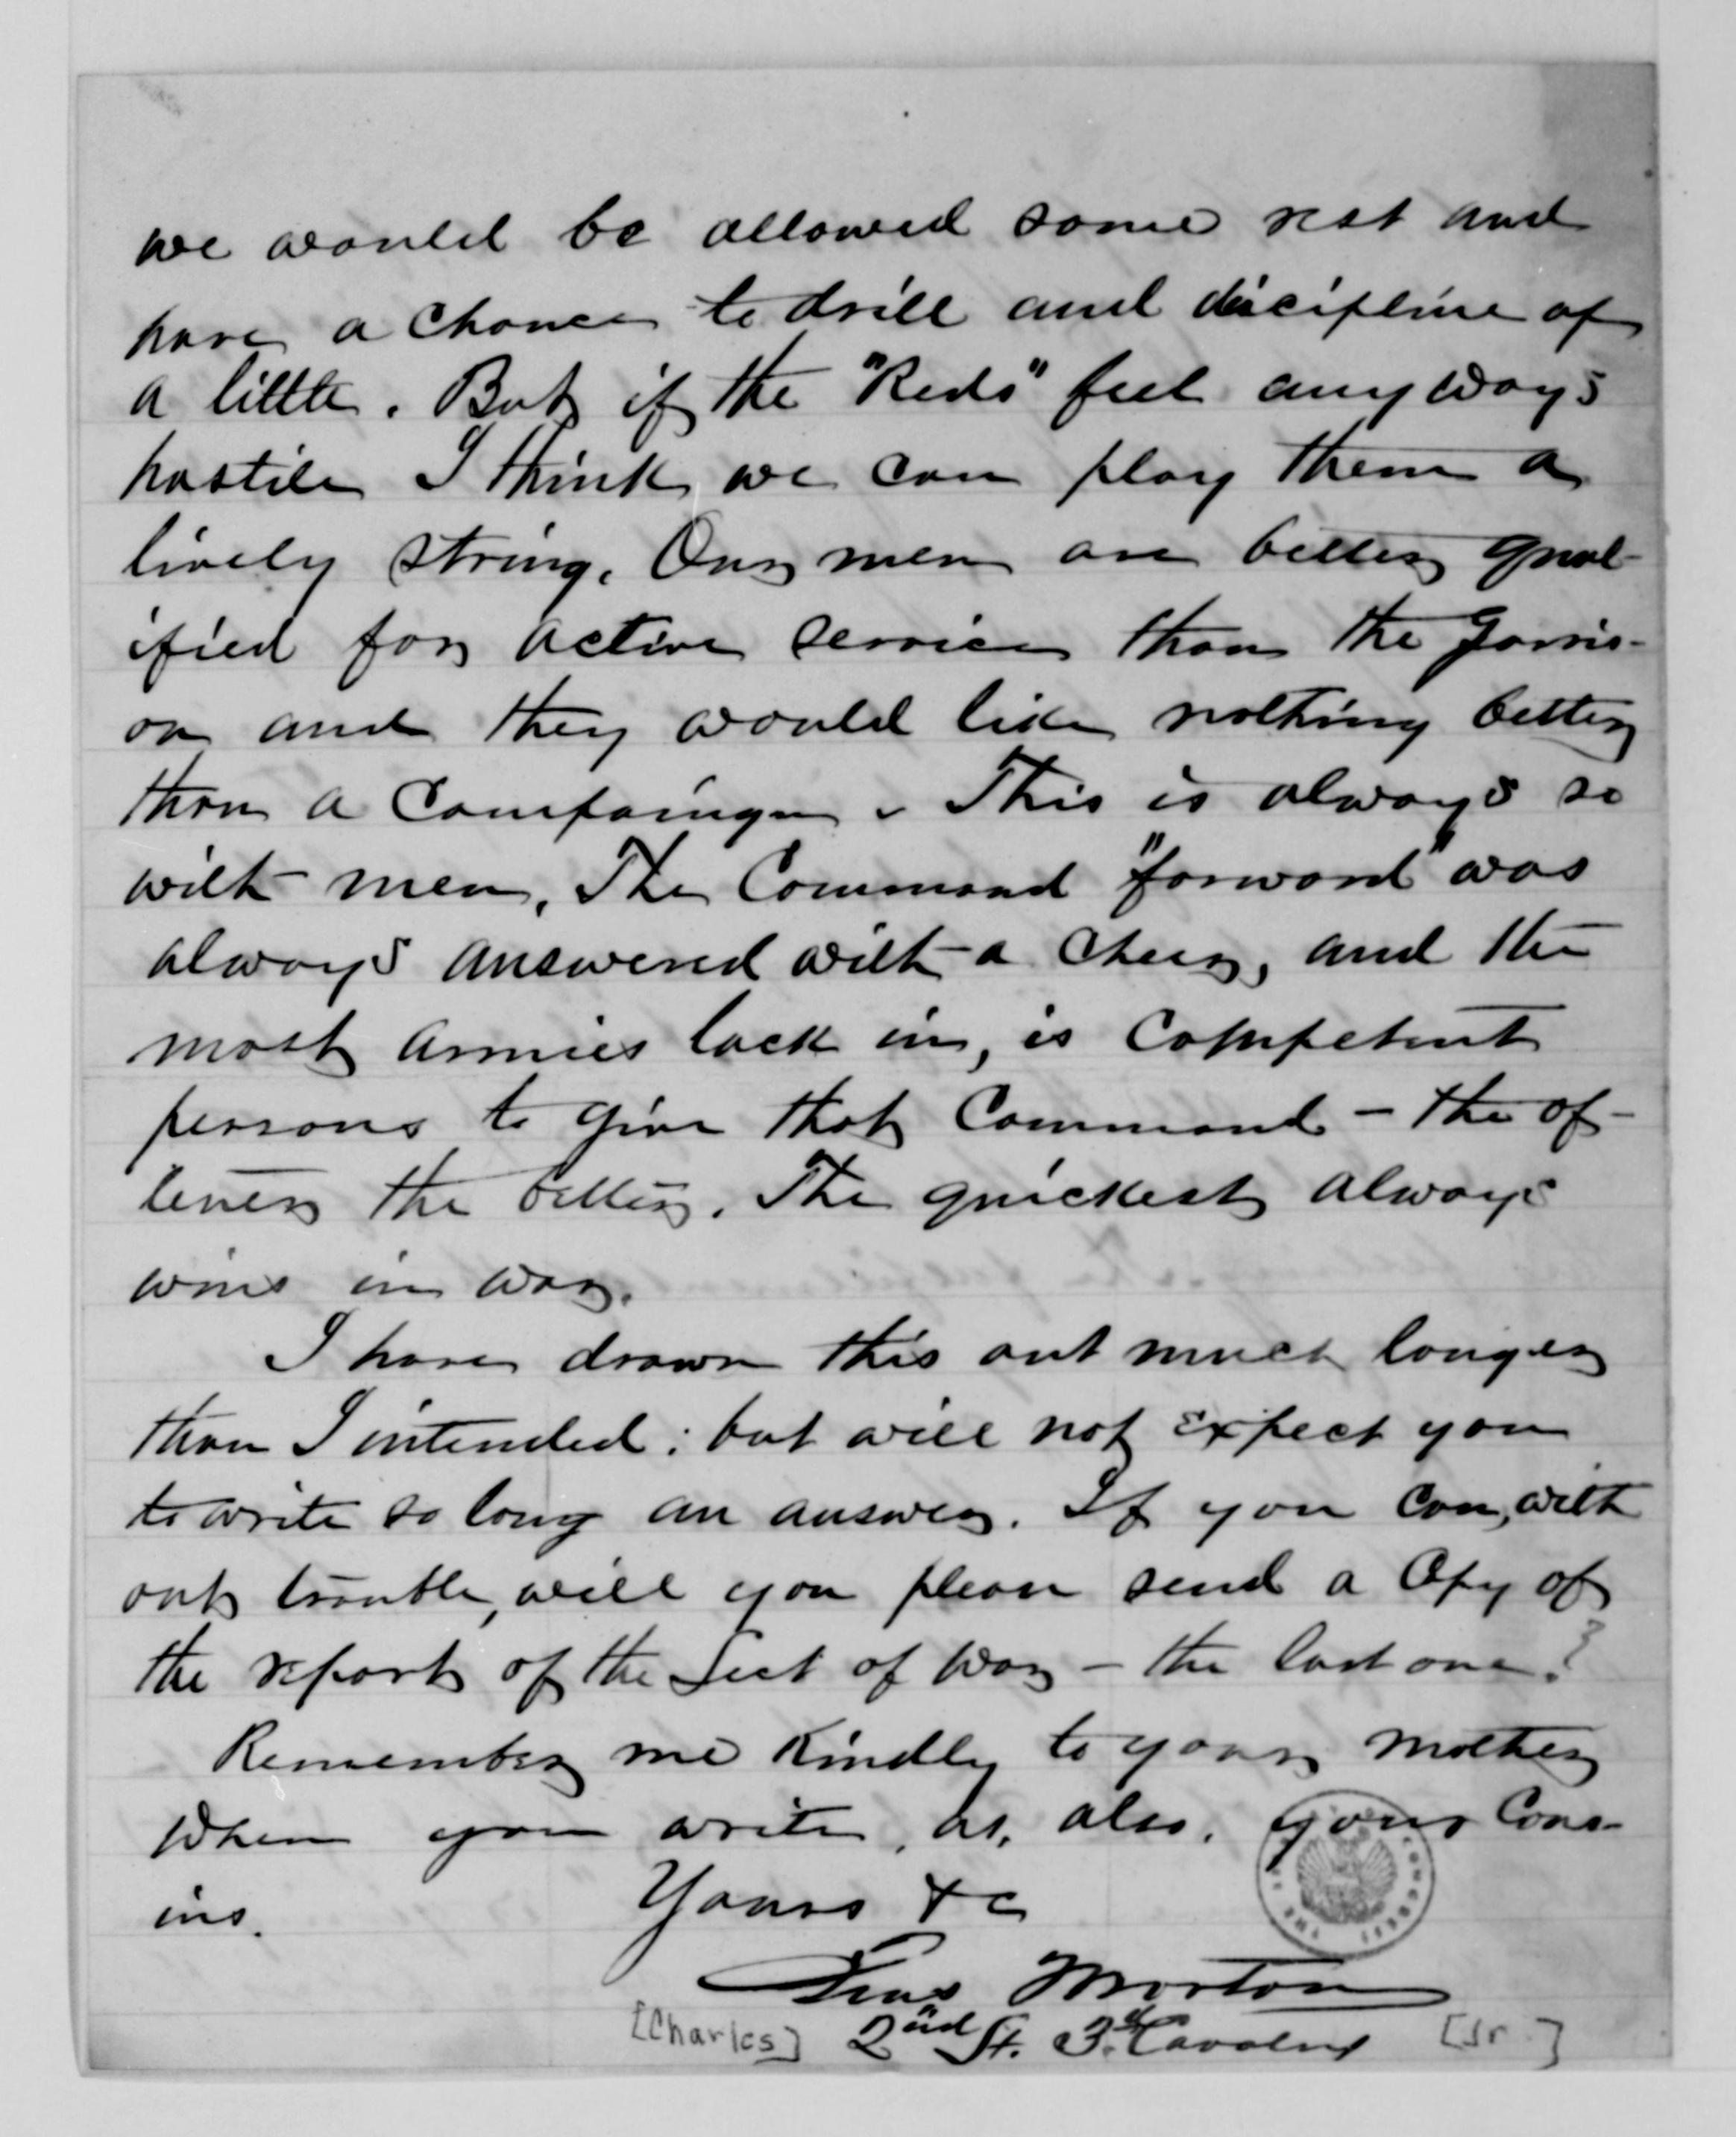 we would be allowed some rest and
have a chance to drill and discipline of
a little. But if the "Reds" feel anyways
hostile I think we can play them a
lively string. Our men are better qual-
ified for active service than the Garris-
on and they would like nothing better
than a Campaingn. This is always so
with men, The Command "forward" was
always answered with a cheer, and the
most armies lack in, is Competent
persons to give that Command - the of-
tener the better. The quickest always
wins in war.
I have drawn this out much longer
than I intended; but will not expect you
to write so long an answer. If you can, with
out trouble, will you please send a Copy of
the report of the Sect of War - the last one?
Remember me Kindly to your mother
when you write, as, also, your Cous-
ins.
Yours &c
Chas Morton
[Charles] 2nd Lt. 3d Cavalry [Jr.]